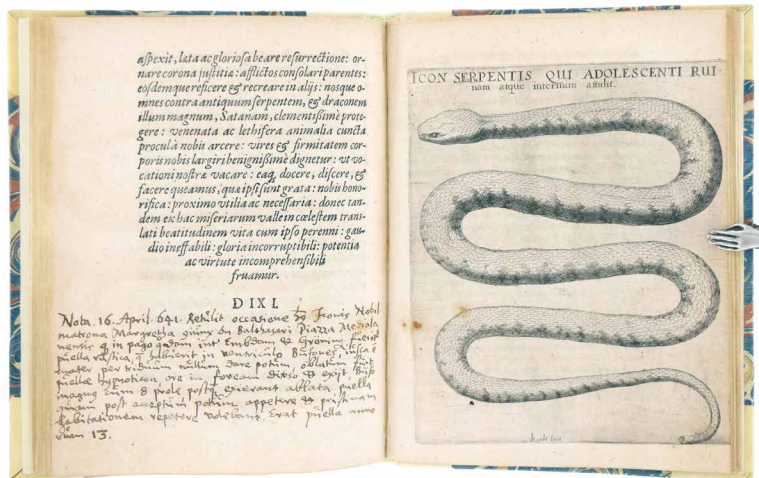 aspexit, læta ac gloriosa beare resurrectione: or-
nare corona justitiæ: afflictos consolari parentes:
eosdemque reficere & recreare in alijs: nosque o-
mnes contra antiquum serpentem, & draconem
illum magnum, Satanam, clementißimè prote-
gere: venenata ac lethifera animalia cuncta
procul à nobis arcere: vires & firmitatem cor-
poris nobis largiri benignißimè dignetur: vt vo-
cationi nostræ vacare: eaq́, docere, discere, &
facere queamus, quæ ipsi sint grata: nobis hono-
rifica: proximo vtilia ac necessaria: donec tan-
dem ex hac miseriarum valle in cœlestem trans-
lati beatitudinem vita cum ipso perenni: gau-
dio ineffabili: gloria incorruptibili: potentia
ac virtute incomprehensibili
fruamur.
DIXI.
Nota. 16. April. 641. Retulit occasione Iconis Nobil
matrona Margretha Balthasari Piazza Mediola
nensis in pago int Embdam & Gröning fuerit
puella rustica, habuerit in ventriculo Bufones,
mater per triduum nullum dare potum, oblatum
puellæ hypnoticon, ore in foveam & exijt Bufo
magnus cum 8 prole post exierant ablata puella
post acceptum potum appetere & pristinam
habitationem repetere volebant. Erat puella anno
rum 13.
ICON SERPENTIS QUI ADOLESCENTI RUI
nam atque interitum attulit.